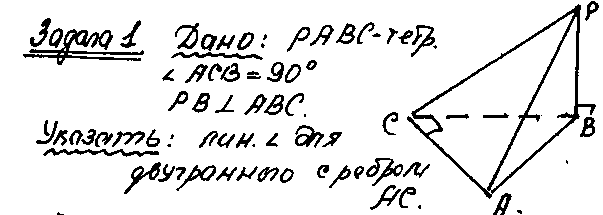 Задача 1. Дано: PABC-тетр.
∠ACB = 90°
PB ⊥ ABC.
Указать: лин. ∠ для
двугранного с ребром
AC.
P
C
B
A.